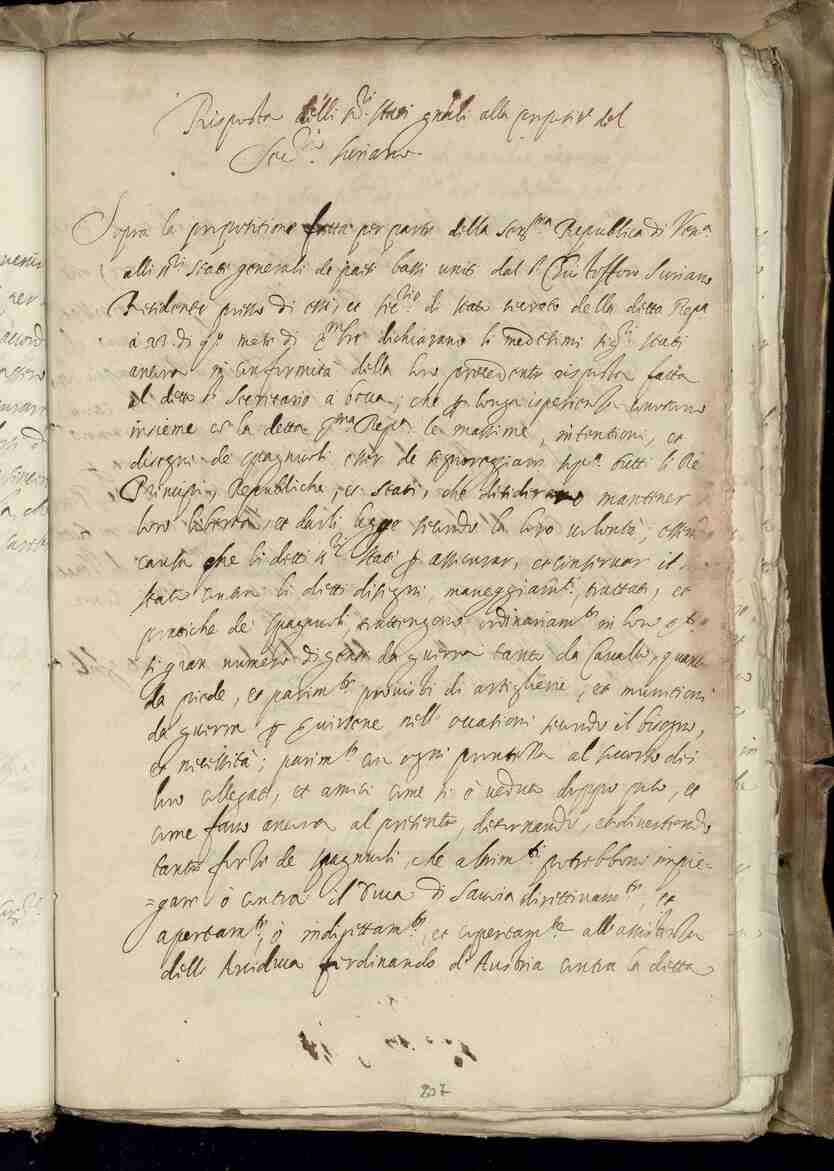 Risposta delli s.ri stati gn̄ali alla propositne del
Secrio Suriano
Sopra la propositione fatta per parte della Serma Republica di Vena
alli s.ri Stati generali de paesi bassi uniti dal sr Christofforo Suriano
Residente presso di essi, et secrio di stato della detta Repa
a di mese di dichiarano li medesimi sigri stati
ancora in conformità della loro precedente risposta fatta
al detto sr Secretario a bocca, che ꝑ longa isperienza
insieme co la detta Serma Repa le massime, intentioni, et
disegni de spagnuoli esser de signoreggiare sopra tutti li Re
Principi, Republiche, et stati, che desiderano mantener
loro libertà, et darli legge secondo la loro volontà, essendo
causa che li detti sri stati ꝑ assicurar, et conservar il
stato contra li detti disegni, maneggiamti, trattati, et
pratiche de spagnuoli, trattengono ordinariamte in loro
si gran numero di gente da guerra tanto da Cavallo, quanto
da piede, et parimte provisti di artiglierie, et munitioni
da guerra ꝑ servirsene nell occationi secondo il bisogno,
et necessità; parimte con ogni prontezza al soccorso de i
loro collegati, et amici come si è veduto doppo poco, et
come fano ancora al presente, divertendo
tante forze de spagnuoli, che altrimti potrebbono impie=
=gare ò contra il Duca di Savoia direttivamte, et
apertamte, ò indirettamte, et copertamte all assistenza
dell Arciduca ferdinando d'Austria contra la detta
207